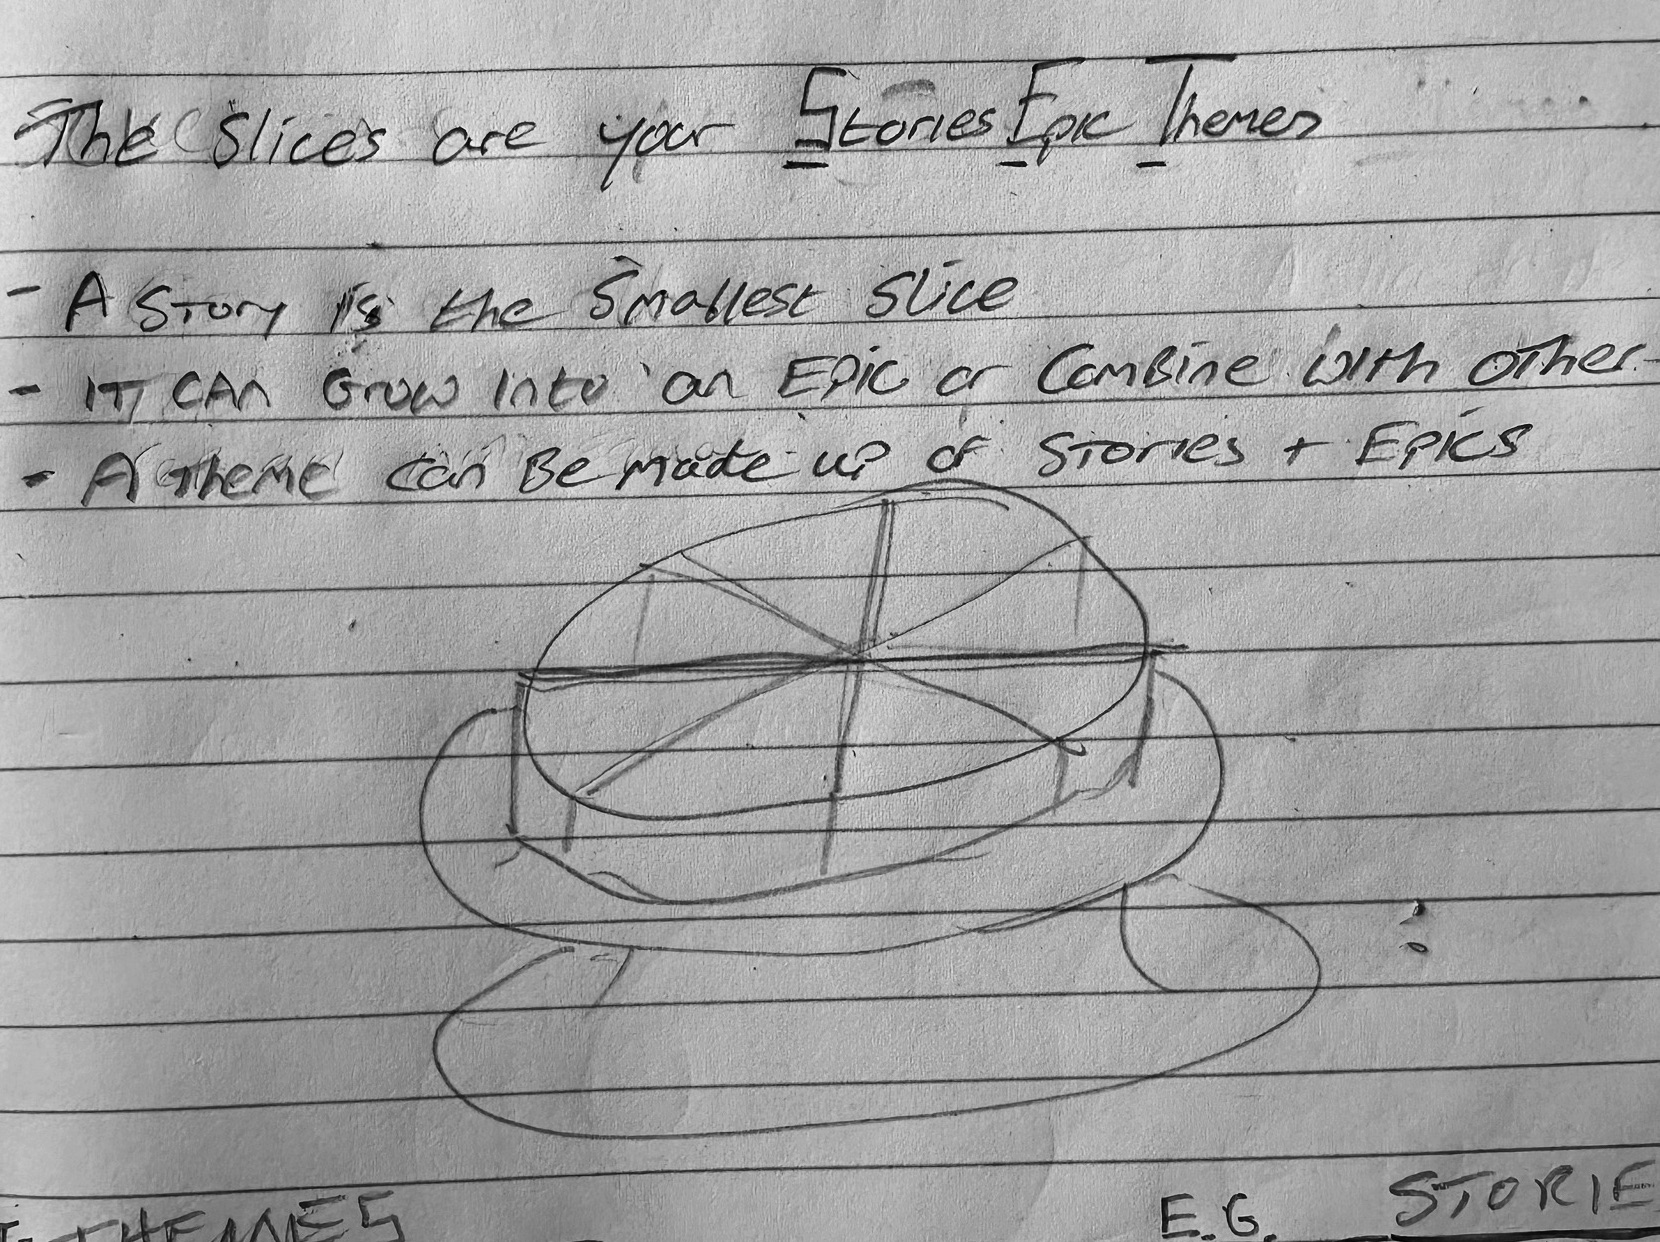 The Slices are your Stories Epic Themes
- A Story is the Smallest Slice
- IT CAN Grow into an Epic or Combine with other
- A Theme can Be made up of Stories + Epics
THEMES
E.G. STORIE